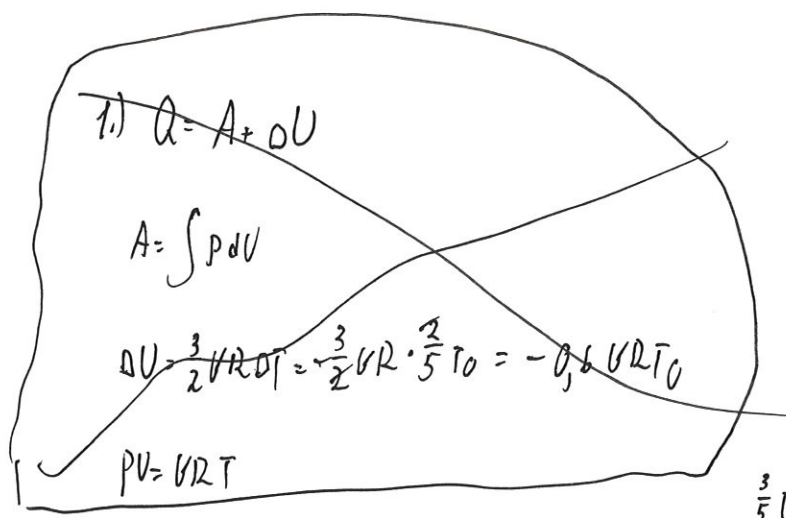 1.) Q = A + ΔU
A = ∫ p dV
ΔU = 3/2 νRΔT = -3/2 νR · 2/5 T₀ = -0,6 νRT₀
pV = νRT
3/5